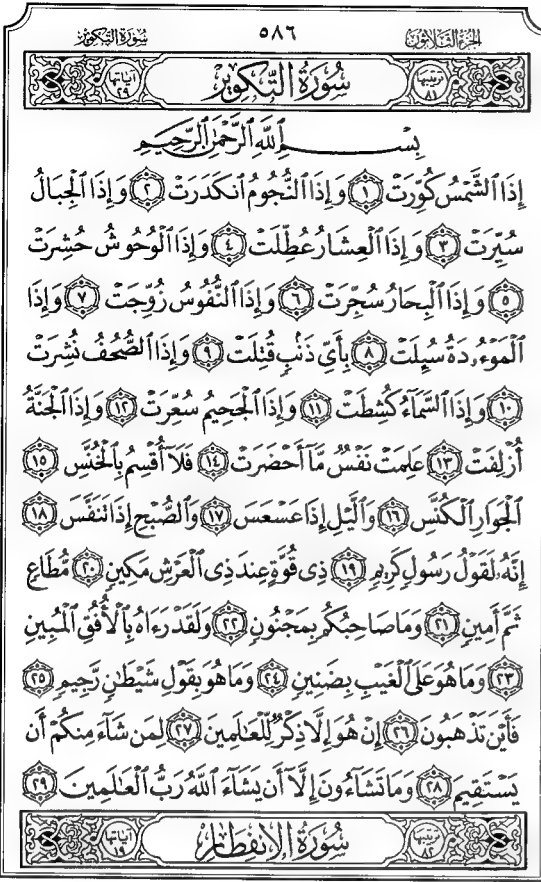 سُورَةُ التَّكْوِير ٥٨٦ الجُزْءُ الثَّلَاثُونَ
آيَاتُهَا ٢٩ سُورَةُ التَّكْوِيرِ تَرْتِيبُهَا ٨١
بِسْمِ ٱللَّهِ ٱلرَّحْمَٰنِ ٱلرَّحِيمِ
إِذَا ٱلشَّمْسُ كُوِّرَتْ ١ وَإِذَا ٱلنُّجُومُ ٱنكَدَرَتْ ٢ وَإِذَا ٱلْجِبَالُ
سُيِّرَتْ ٣ وَإِذَا ٱلْعِشَارُ عُطِّلَتْ ٤ وَإِذَا ٱلْوُحُوشُ حُشِرَتْ
٥ وَإِذَا ٱلْبِحَارُ سُجِّرَتْ ٦ وَإِذَا ٱلنُّفُوسُ زُوِّجَتْ ٧ وَإِذَا
ٱلْمَوْءُۥدَةُ سُئِلَتْ ٨ بِأَىِّ ذَنۢبٍ قُتِلَتْ ٩ وَإِذَا ٱلصُّحُفُ نُشِرَتْ
١٠ وَإِذَا ٱلسَّمَآءُ كُشِطَتْ ١١ وَإِذَا ٱلْجَحِيمُ سُعِّرَتْ ١٢ وَإِذَا ٱلْجَنَّةُ
أُزْلِفَتْ ١٣ عَلِمَتْ نَفْسٌ مَّآ أَحْضَرَتْ ١٤ فَلَآ أُقْسِمُ بِٱلْخُنَّسِ ١٥
ٱلْجَوَارِ ٱلْكُنَّسِ ١٦ وَٱلَّيْلِ إِذَا عَسْعَسَ ١٧ وَٱلصُّبْحِ إِذَا تَنَفَّسَ ١٨
إِنَّهُۥ لَقَوْلُ رَسُولٍ كَرِيمٍ ١٩ ذِى قُوَّةٍ عِندَ ذِى ٱلْعَرْشِ مَكِينٍ ٢٠ مُّطَاعٍ
ثَمَّ أَمِينٍ ٢١ وَمَا صَاحِبُكُم بِمَجْنُونٍ ٢٢ وَلَقَدْ رَءَاهُ بِٱلْأُفُقِ ٱلْمُبِينِ
٢٣ وَمَا هُوَ عَلَى ٱلْغَيْبِ بِضَنِينٍ ٢٤ وَمَا هُوَ بِقَوْلِ شَيْطَٰنٍ رَّجِيمٍ ٢٥
فَأَيْنَ تَذْهَبُونَ ٢٦ إِنْ هُوَ إِلَّا ذِكْرٌ لِّلْعَٰلَمِينَ ٢٧ لِمَن شَآءَ مِنكُمْ أَن
يَسْتَقِيمَ ٢٨ وَمَا تَشَآءُونَ إِلَّآ أَن يَشَآءَ ٱللَّهُ رَبُّ ٱلْعَٰلَمِينَ ٢٩
آيَاتُهَا ١٩ سُورَةُ الانفِطَارِ تَرْتِيبُهَا ٨٢